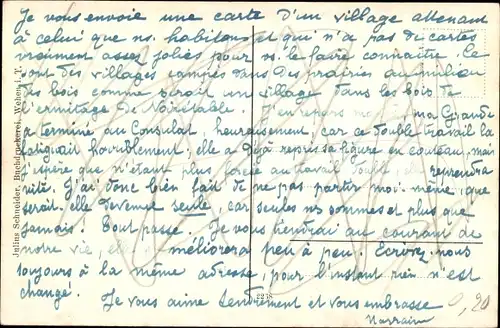 Je vous envoie une carte d'un village attenant
à celui que ns. habitons et qui n'a pas de cartes
vraiment assez jolies pour ns. le faire connaître. Ce
sont des villages campés dans des prairies au milieu
des bois comme serait un village dans les bois de
l'ermitage de Noirétable. J'en repars ma Grande
a terminé au Consulat, heureusement, car ce double travail la
fatiguait horriblement; elle a déjà repris sa figure en couteau, mais
j'espère que n'étant plus forcée au travail toute elle reprendra
vite. J'ai donc bien fait de ne pas partir moi-même, que
serait-elle devenue seule, car seules ns sommes et plus que
jamais! Tout passe. Je vous tiendrai au courant de
notre vie, elle améliorera peu à peu. Ecrivez-nous
toujours à la même adresse, pour l'instant rien n'est
changé. Je vous aime tendrement et vous embrasse
Julius Schneider, Buchdruckerei, Weiher i. T.
2238
0,20